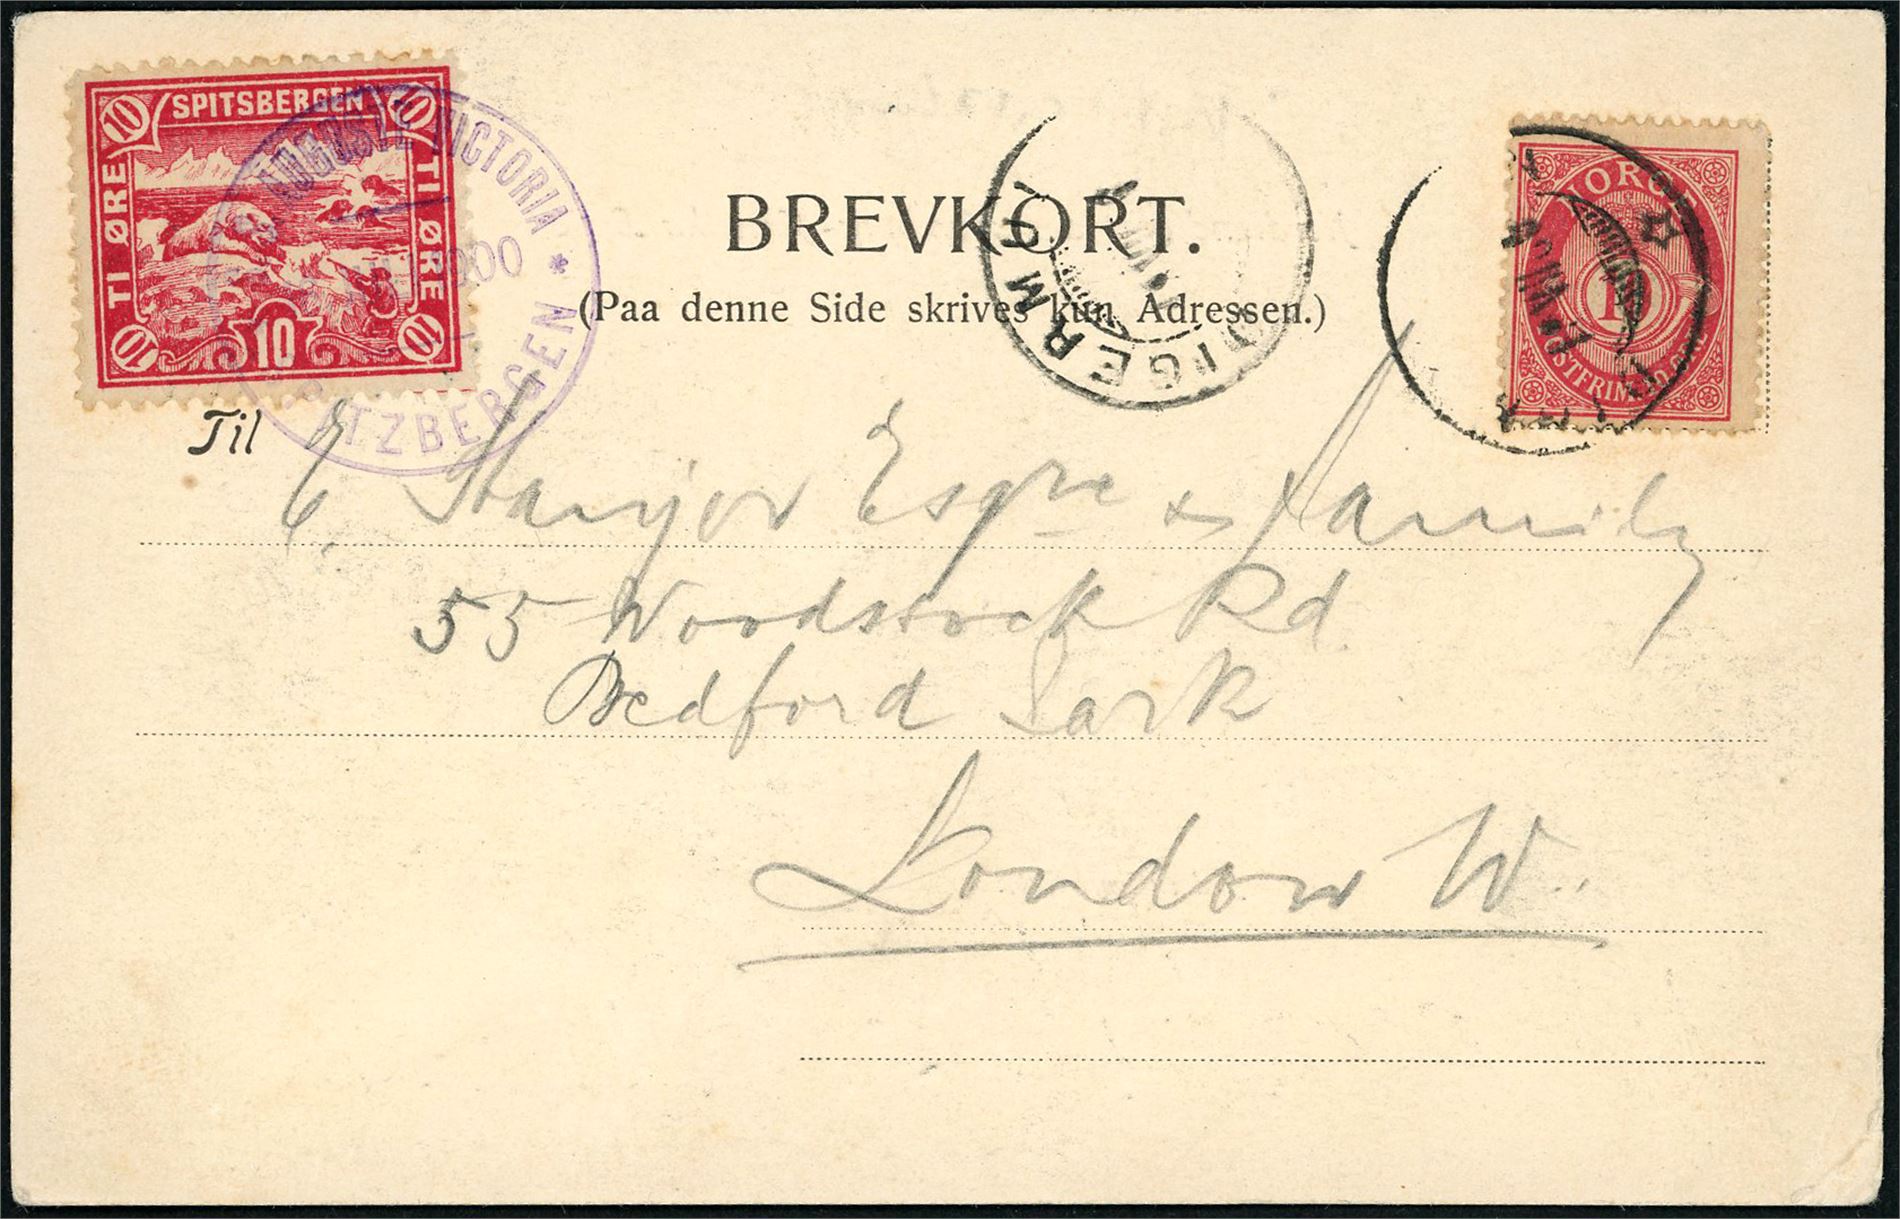 10 SPITSBERGEN 10
TI ØRE
TI ØRE
10 10 10
AUGUSTE VICTORIA *
1900
SPITZBERGEN
BREVKORT.
(Paa denne Side skrives kun Adressen.)
DIGERMUL
NORGE
10
Til
E. Stanyor Esqre & Family
55 Woodstock Rd
Bedford Park
London W.